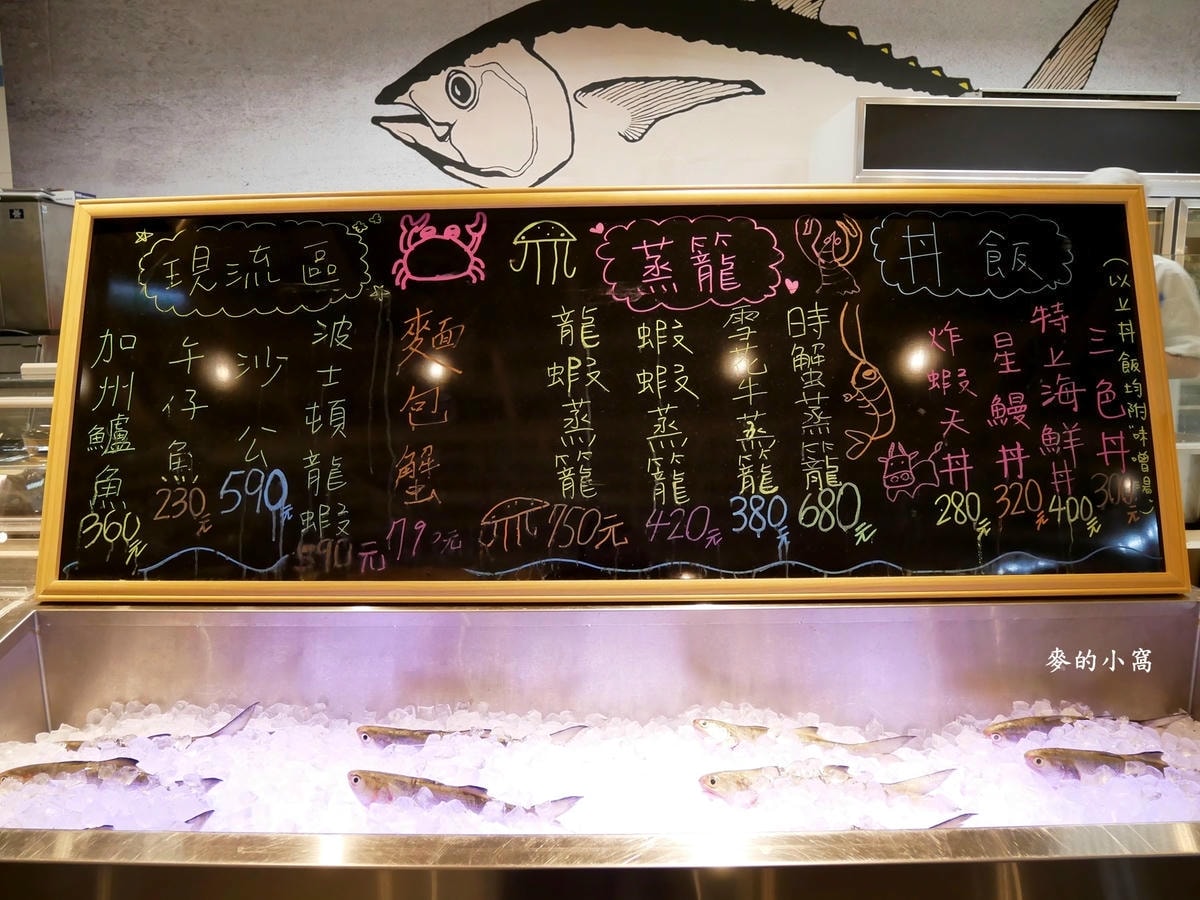 現流區
加州鱸魚 360元
午仔魚 230元
沙公 590元
波士頓龍蝦 590元
麵包蟹 元
蒸籠
龍蝦蒸籠 750元
蝦蝦蒸籠 420元
雪花牛蒸籠 380元
時蟹蒸籠 680元
丼飯
炸蝦天丼 280元
星鰻丼 320元
特上海鮮丼 400元
三色丼 300元
(以上丼飯均附味噌湯)
麥的小窩